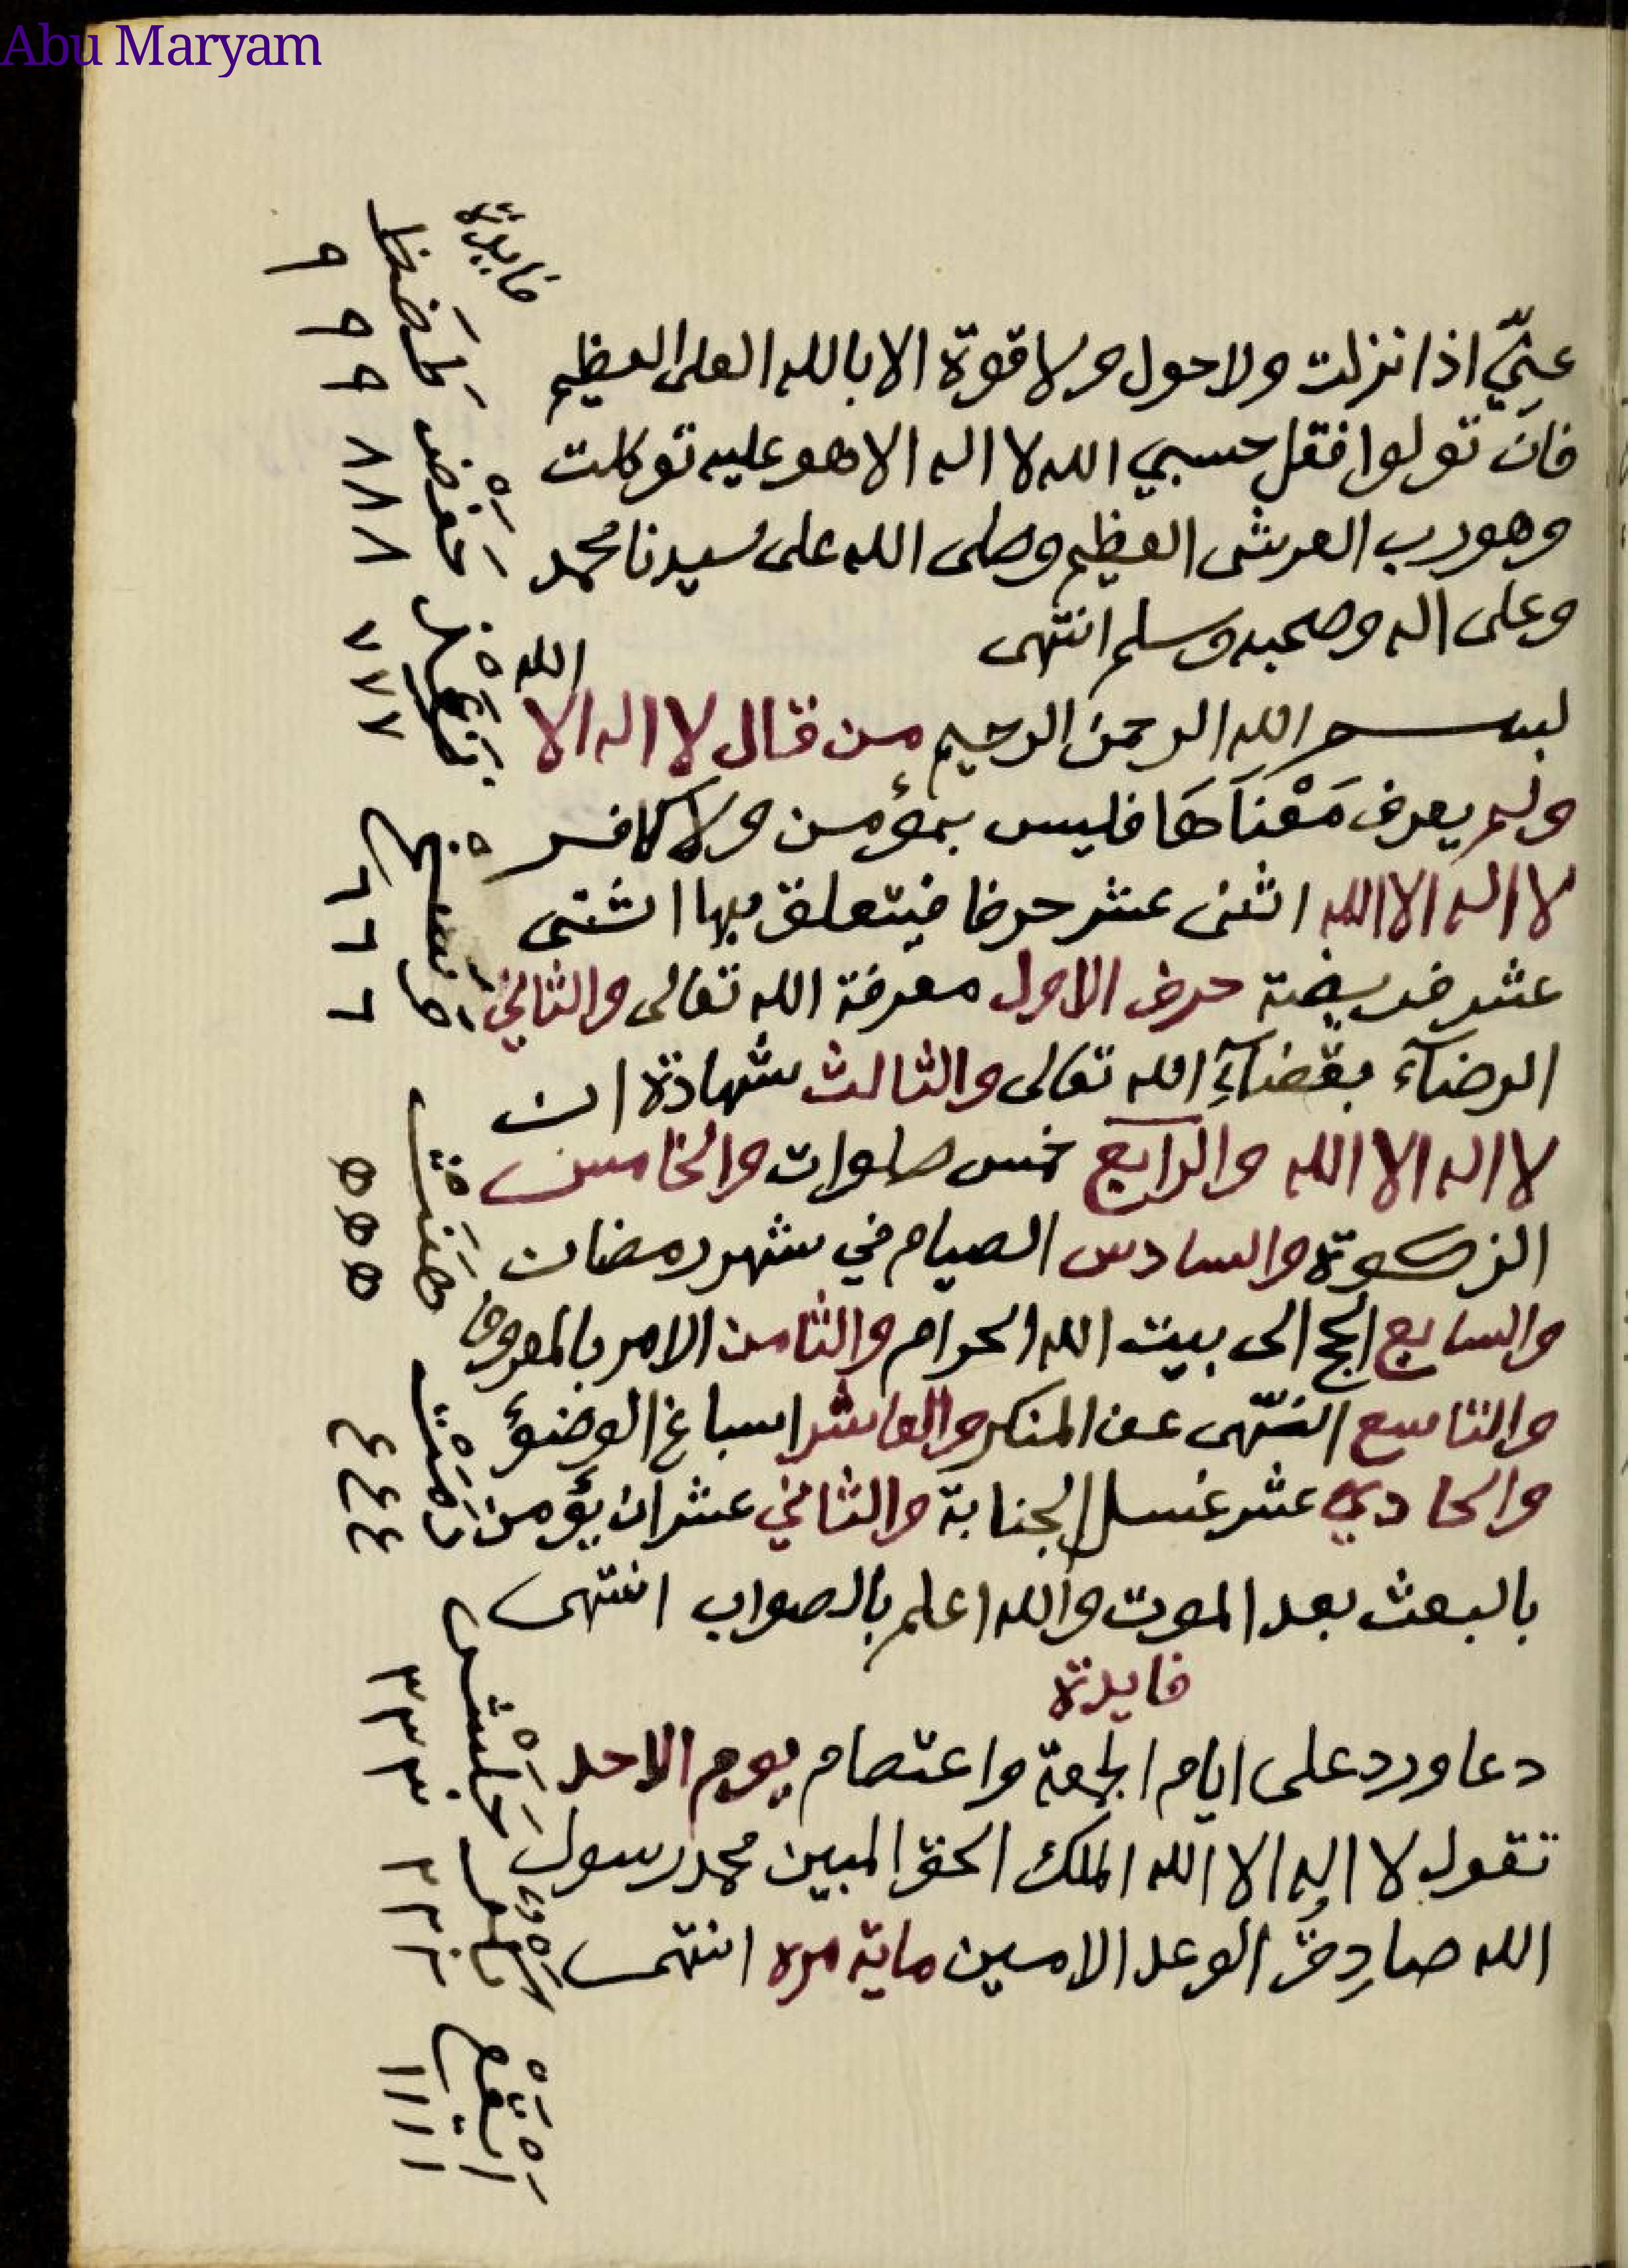 Abu Maryam
عنّي اذا نزلت ولا حول ولا قوة الا بالله العلى العظيم
فان تولوا فقل حسبي الله لا اله الا هو عليه توكلت
وهو رب العرش العظيم وصلى الله على سيدنا محمد
وعلى اله وصحبه وسلم انتهى
بسم الله الرحمن الرحيم من قال لا اله الا الله
ولم يعرف مَعْنَاهَا فليس بمؤمن ولا كافر
لا اله الا الله اثنى عشر حرفا فيتعلق بها اثنى
عشر فريضة حرف الاول معرفة الله تعالى والثاني
الرضآء بقضآءِ الله تعالى والثالث شهادة ان
لا اله الا الله والرابع خمس صلوات والخامس
الزكوة والسادس الصيام في شهر رمضان
والسابع الحج الى بيت الله الحرام والثامن الامر بالمعروف
والتاسع النّهى عن المنكر والعاشر اسباغ الوضوء
والحادي عشر غسل الجنابة والثاني عشر ان يؤمن
بالبعث بعد الموت والله اعلم بالصواب انتهى
فايدة
دعا ورد على ايام الجمعة واعتصام يوم الاحد
تقول لا اله الا الله الملك الحق المبين محمد رسول
الله صادِق الوعد الامين ماية مره انتهى
فايدة
ايقغ
١١١١
٢٢٢
جلش
٣٣٣
دمت
٤٤٤
هنث
٥٥٥
وسخ
٦٦٦
زعذ
٧٧٧
حفض
٨٨٨
طصظ
٩٩٩